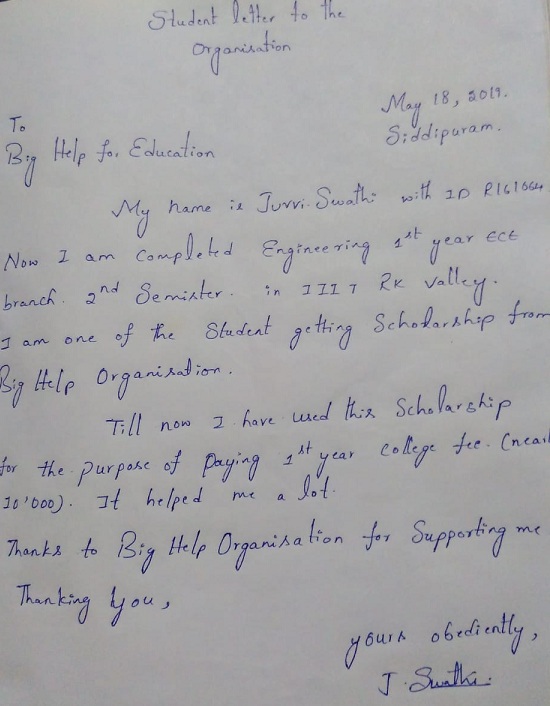 Student letter to the
Organisation
May 18, 2019.
Siddipuram.
To
Big Help for Education
My name is Juvvi.Swathi with ID R161664
Now I am completed Engineering 1st year ECE
branch. 2nd Semister. in IIIT RK valley.
I am one of the Student getting Scholarship from
Big Help Organisation.
Till now I have used this Scholarship
for the purpose of paying 1st year college fee. (near
10'000). It helped me a lot.
Thanks to Big Help Organisation for Supporting me
Thanking you,
yours obediently,
J. Swathi.